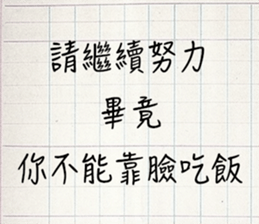 請繼續努力
畢竟
你不能靠臉吃飯